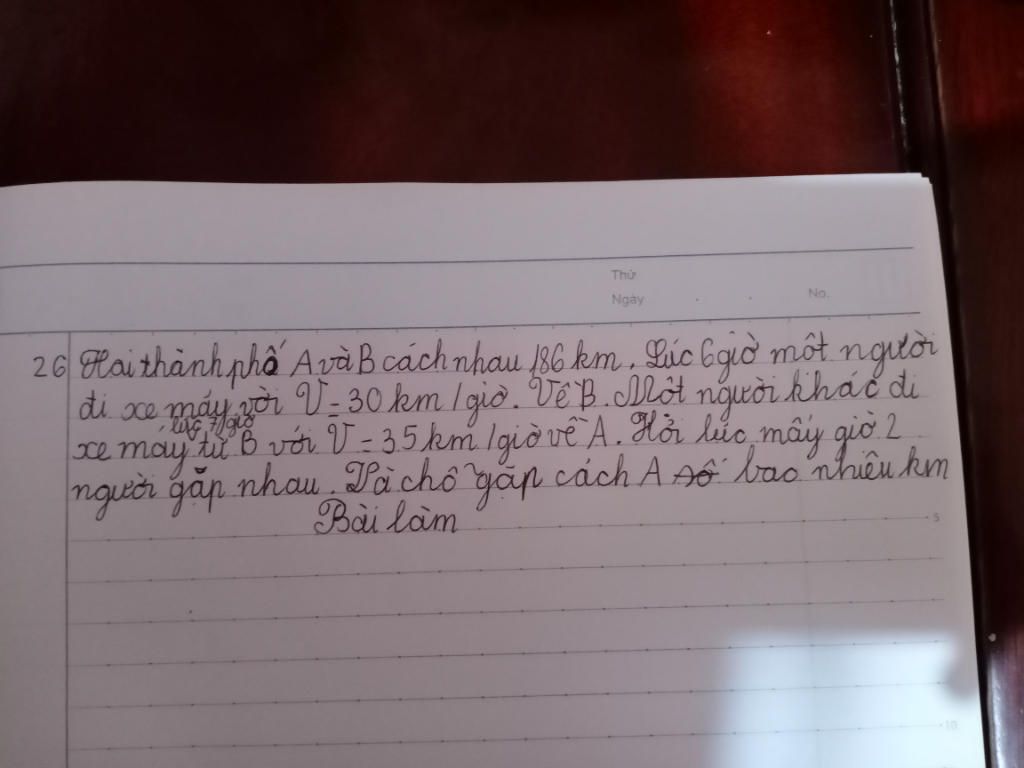 Thứ
Ngày . . No.
26 Hai thành phố A và B cách nhau 186 km. Lúc 6 giờ một người
đi xe máy với V = 30 km/giờ. Về B. Một người khác đi
lúc 7 giờ
xe máy từ B với V = 35 km/giờ về A. Hỏi lúc mấy giờ 2
người gặp nhau. Và chỗ gặp cách A bao nhiêu km
Bài làm
5
10